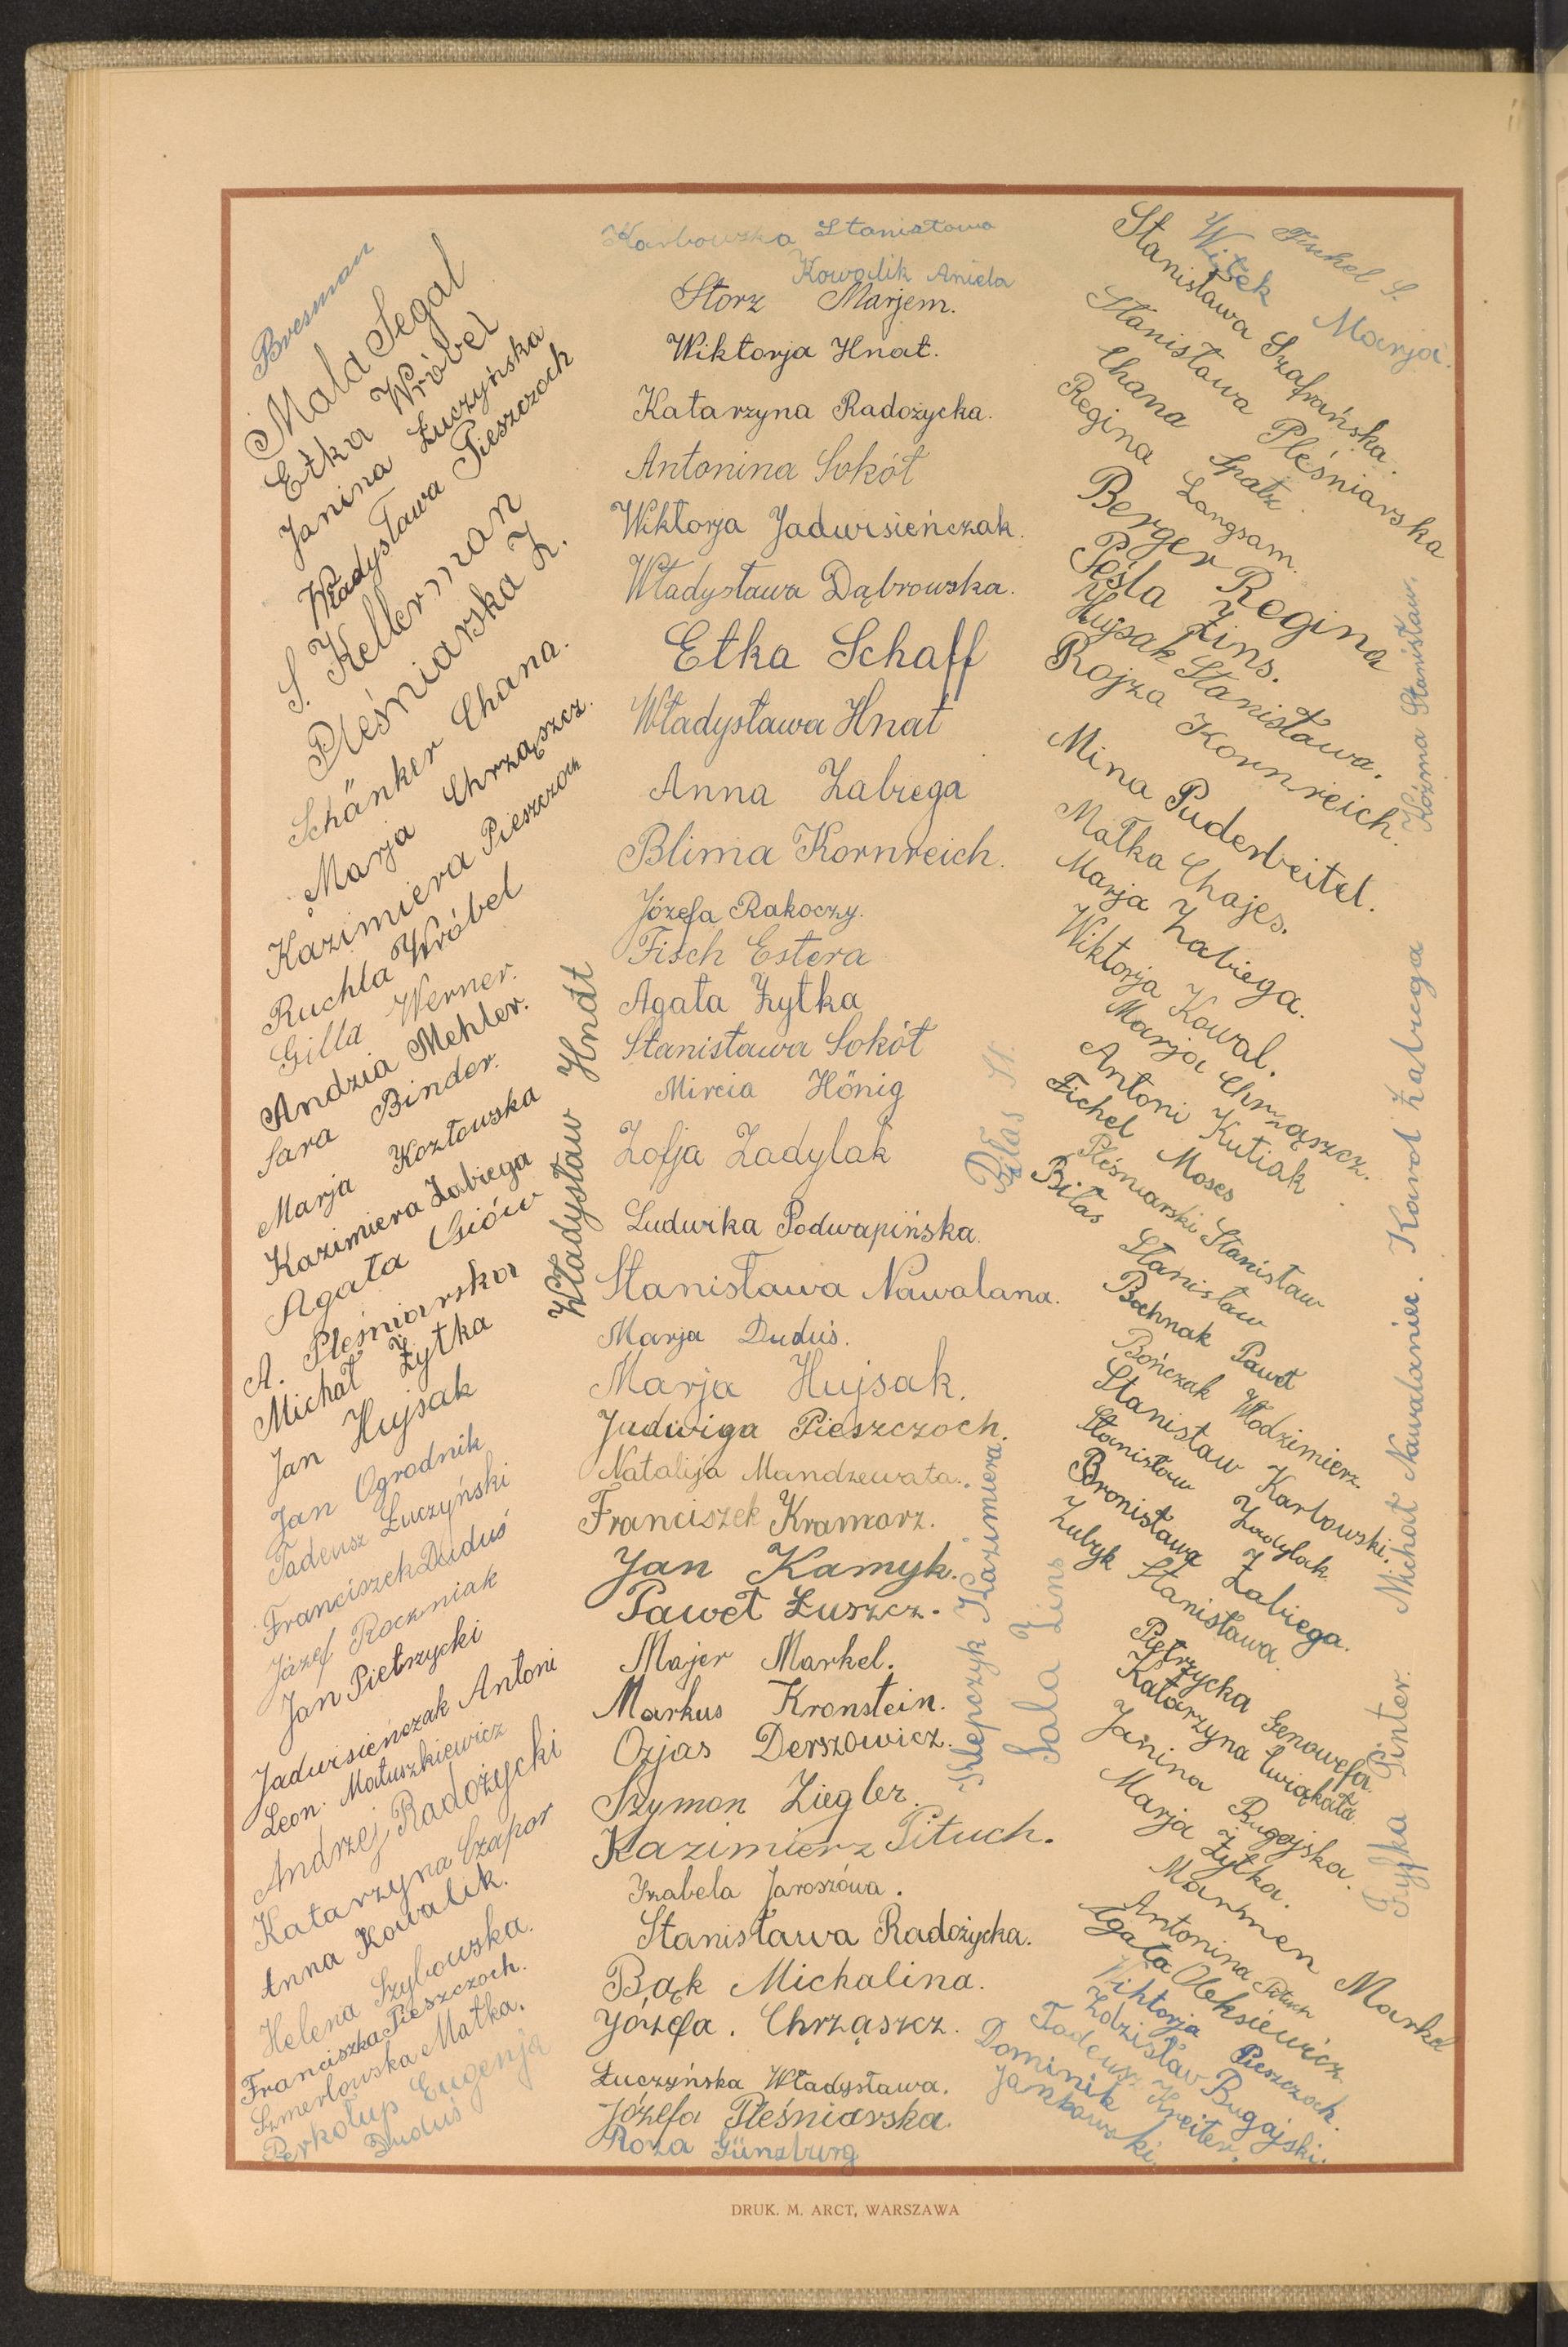 Bresman
Mala Segal
Etka Wróbel
Janina Łuczyńska
Władysława Pieszczoch
S. Kellerman
Pleśniarska Z.
Schänker Chana.
Marja Chrząszcz.
Kazimiera Pieszczoch
Ruchla Wróbel
Gilla Werner.
Andzia Mehler.
Sara Binder.
Marja Kozłowska
Kazimiera Zabiega
Agata Giów
A. Pleśniarska
Michał Żytka
Jan Hujsak
Jan Ogrodnik
Tadeusz Łuczyński
Franciszek Duduś
Józef Roczniak
Jan Pietrzycki
Jadwisieńczak Antoni
Leon Matuszkiewicz
Andrzej Radożycki
Katarzyna Czapor
Anna Kowalik.
Helena Szybowska.
Franciszka Pieszczoch.
Szmerlowska Matka.
Perkołup Eugenja
Duduś
Władysław Hnat
Karbowska Stanisława
Kowalik Aniela
Storz Marjem.
Wiktorja Hnat.
Katarzyna Radożycka.
Antonina Sokół
Wiktorja Jadwisieńczak.
Władysława Dąbrowska.
Etka Schaff
Władysława Hnat
Anna Zabiega
Blima Kornreich.
Józefa Rakoczy.
Fisch Estera
Agata Żytka
Stanisława Sokół
Mircia Hönig
Zofja Zadylak
Ludwika Podwapińska.
Stanisława Nawalana.
Marja Duduś.
Marja Hujsak.
Jadwiga Pieszczoch.
Natalija Mandzewata.
Franciszek Kramarz.
Jan Kamyk.
Paweł Łuszcz.
Majer Markel.
Markus Kronstein.
Ozjas Derszowicz.
Szymon Ziegler.
Kazimierz Pituch.
Izabela Jaroszówa.
Stanisława Radożycka.
Bąk Michalina.
Józefa. Chrząszcz.
Łuczyńska Władysława.
Józefa Pleśniarska.
Roza Günzburg
Biłas St.
Klepczyk Kazimiera
Sala Zins
Fischel S.
Witek Marja.
Stanisława Szafrańska.
Stanisława Pleśniarska
Chana Spatz.
Regina Langsam.
Berger Regina
Pesla Zins.
Hujsak Stanisława.
Rojza Kornreich.
Mina Puderbeitel.
Małka Chajes.
Marja Zabiega.
Wiktorja Kowal.
Marja Chrząszcz.
Antoni Kutiak
Fichel Moses
Pleśniarski Stanisław
Biłas Stanisław
Bochnak Paweł
Bończak Włodzimierz.
Stanisław Karbowski.
Stanisław Zadylak.
Bronisława Zabiega.
Zubyk Stanisława.
Pietrzycka Genowefa.
Katarzyna Ćwiąkała.
Janina Bugajska.
Marja Żytka.
Marmen Markel
Antonina Pituch
Agata Oleksiewicz
Wiktorja Pieszczoch.
Zdzisław Bugajski.
Tadeusz Kreiter.
Dominik Jankowski.
Koźma Stanisław.
Ryfka Pinter. Michał Nawalaniec. Karol Zabiega
DRUK. M. ARCT, WARSZAWA